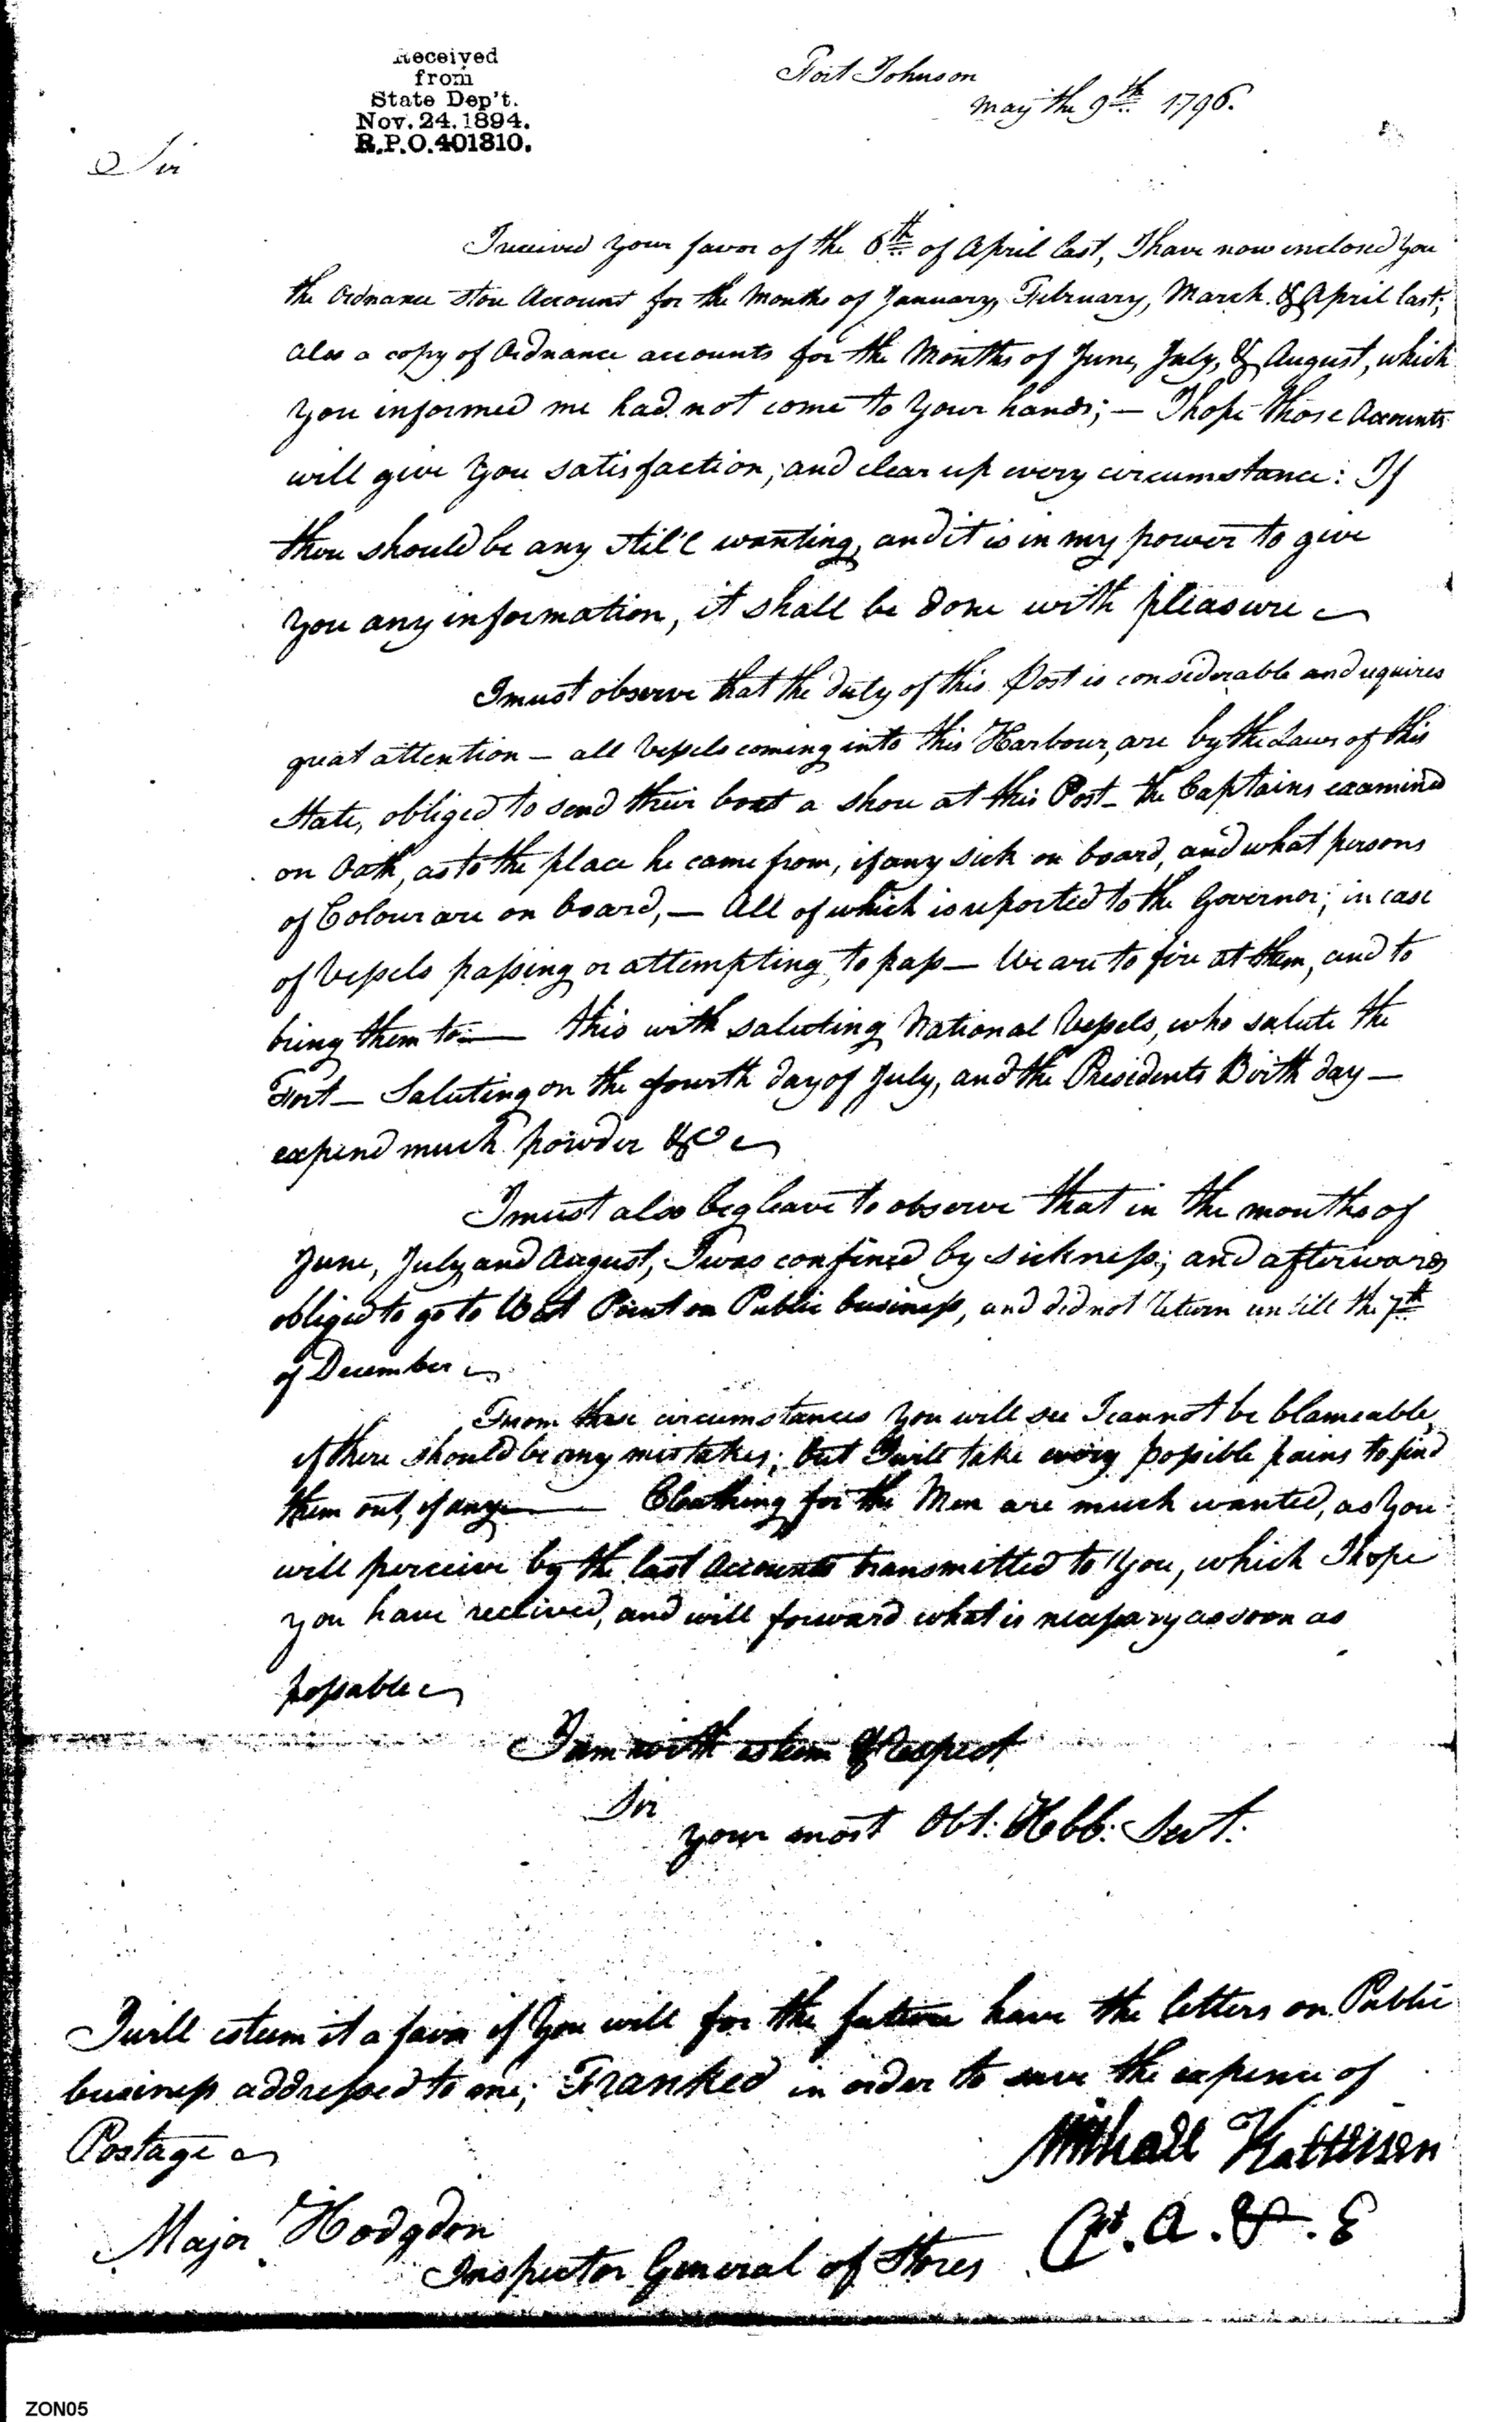 Received
from
State Dep't.
Nov. 24. 1894.
R.P.O. 401310.
Fort Johnson
may the 9th 1796.
Sir
I received your favor of the 6th of April last, I have now enclosed you
the Ordnance store Account for the Months of January, February, March & April last;
also a copy of Ordnance accounts for the Months of June, July, & August, which
you informed me had not come to your hands; — I hope those Accounts
will give you satisfaction, and clear up every circumstance: If
there should be any still wanting, and it is in my power to give
you any information, it shall be done with pleasure
I must observe that the duty of this Post is considerable and requires
great attention — all Vessels coming into this Harbour, are by the Laws of this
State, obliged to send their boat a shore at this Post — the Captains examined
on Oath, as to the place he came from, if any sick on board, and what persons
of Colour are on board, — All of which is reported to the Governor; in case
of Vessels passing or attempting to pass — We are to fire at them, and to
bring them to — this with saluting National Vessels, who salute the
Fort — Saluting on the fourth day of July, and the Presidents Birth day —
expend much powder &c
I must also beg leave to observe that in the months of
June, July and August, I was confined by sickness; and afterwards
obliged to go to West Point on Public business, and did not return untill the 7th
of December
From these circumstances you will see I cannot be blameable,
if there should be any mistakes; but I will take every possible pains to find
them out, if any — Cloathing for the Men are much wanted, as you
will perceive by the last Accounts transmitted to you, which I hope
you have received, and will forward what is necessary as soon as
possable
I am with esteem & respect
Sir
your most Obt: Hbb: Sert:
I will esteem it a favor if you will for the future have the letters on Public
business addressed to me; Franked in order to save the expence of
Postage
Mikall Kalteisen
Cpt. A. & E
Major Hodgdon
Inspector General of Stores
ZON05